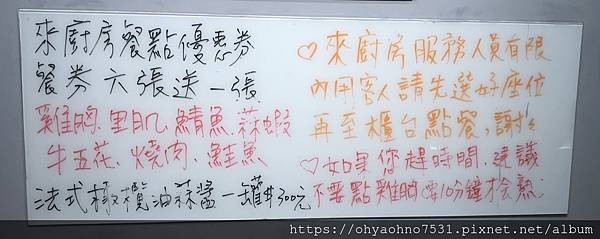 來廚房餐點優惠券
餐券六張送一張
雞胸、里肌、鯖魚、蒜蝦
牛五花、燒肉、鮭魚
法式橄欖油蒜醬一罐$300元
♡來廚房服務人員有限
內用客人請先選好座位
再至櫃台點餐,謝謝
♡如果您趕時間,建議
不要點雞胸要10分鐘才會熟
https://ohyaohno7531.pixnet.net/album